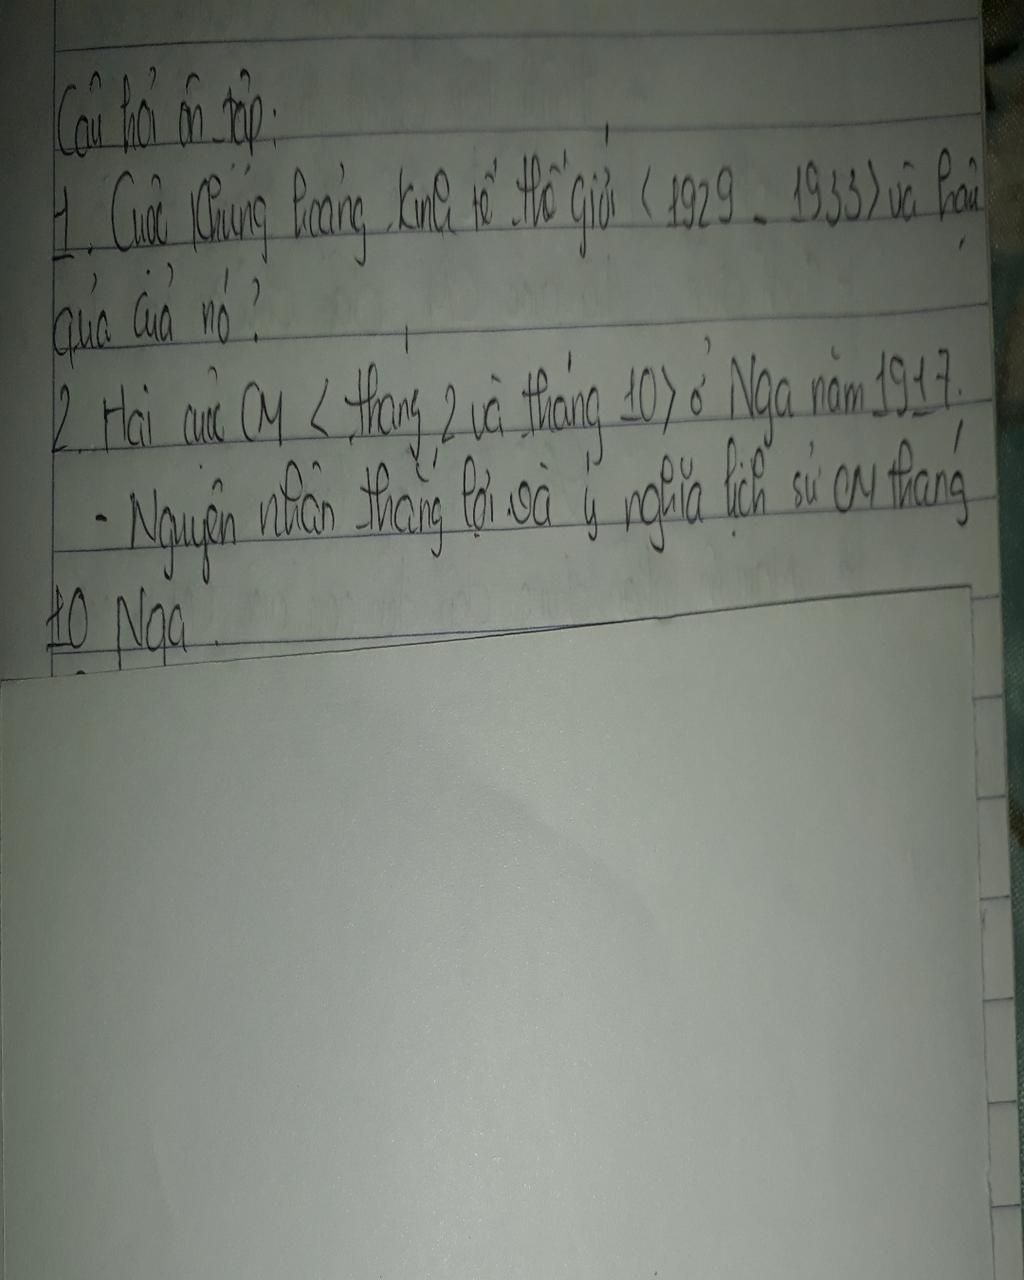 Câu hỏi ôn tập:
1. Cuộc khủng hoảng kinh tế thế giới (1929 - 1933) và hậu
quả của nó?
2. Hai cuộc CM <tháng 2 và tháng 10> ở Nga năm 1917.
- Nguyên nhân thắng lợi và ý nghĩa lịch sử CM tháng
10 Nga.